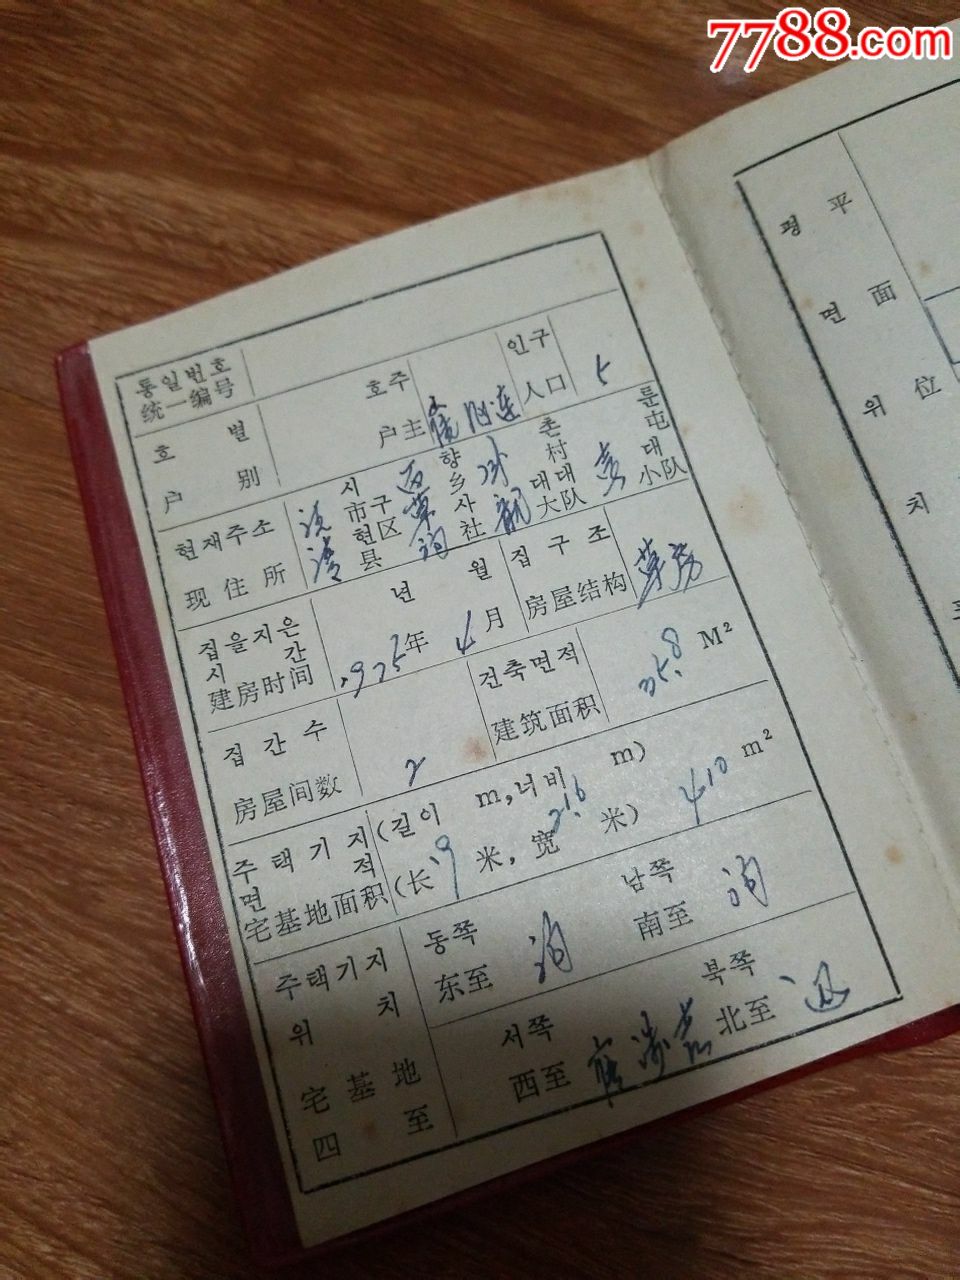 7788.com
통일번호
统一编号
호 별
户 别
호주
户主
인구
人口 5
현재주소
现 住 所
시
市구
현
县区
향
乡
사
社
촌
村
대대
大队
툰
屯
대
小队
집을지은
시 간
建房时间
년 월
1975年 4月
집 구 조
房屋结构 草房
집 간 수
房屋间数 2
건축면적
建筑面积 35.8 M²
주택기지
면 적
宅基地面积
(길이 m,너비 m)
(长19米, 宽21.6米) 410 m²
주택기지
위 치
宅 基 地
四 至
동쪽
东至 沟
남쪽
南至 沟
서쪽
西至
북쪽
北至 道
평 平
면 面
위 位
치